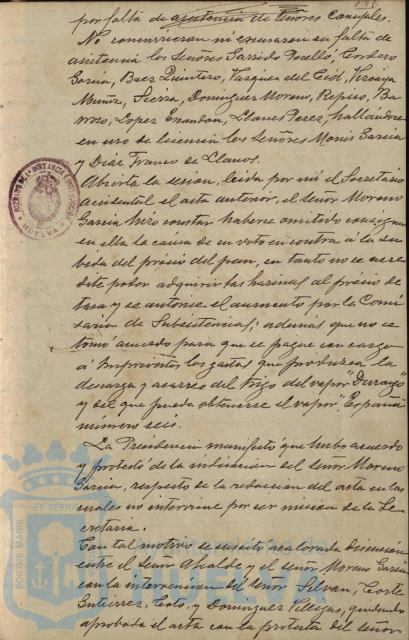 por falta de asistencia de Señores Concejales.
No concurrieron ni excusaron su falta de
asistencia los Señores Garrido Perelló, Cordero
García, Baez Quintero, Vazquez del Cid, Vizcaya
Muñiz, Sierra, Dominguez Moreno, Repiso, Ba-
rroso, Lopez Llanes Perez, hallándose
en uso de licencia los Señores Monis García
y Diaz Franco de Llanos.
Abierta la sesion, leida por mi el Secretario
accidental el acta anterior, el señor Moreno
García hizo constar haberse omitido consignar
en ella la causa de su voto en contra á la su-
bida del precio del pan, en tanto no se acre-
dite poder adquirir las harinas al precio de
tasa y se autorice el aumento por la Comi-
saria de Subsistencias; además que no se
tomó acuerdo para que se pague con cargo
á Imprevistos los gastos que produzca la
descarga y acarreo del trigo del vapor "Durango"
y del que pueda obtenerse el vapor "España"
número seis.
La Presidencia manifestó que hubo acuerdo
y protestó de la indicacion del señor Moreno
García, respecto de la redaccion del acta en las
cuales no interviene por ser mision de la Se-
cretaria.
Con tal motivo se suscitó acalorada discusion
entre el señor Alcalde y el señor Moreno García
con la intervencion del señor Silvan, Corte
Gutierrez, Coto, y Dominguez quedando
aprobada el acta con la protesta del señor
JUZGADO DE 1ª INSTANCIA E INSTRUCCION
HUELVA
PORTUS MARIS ET TERRAE